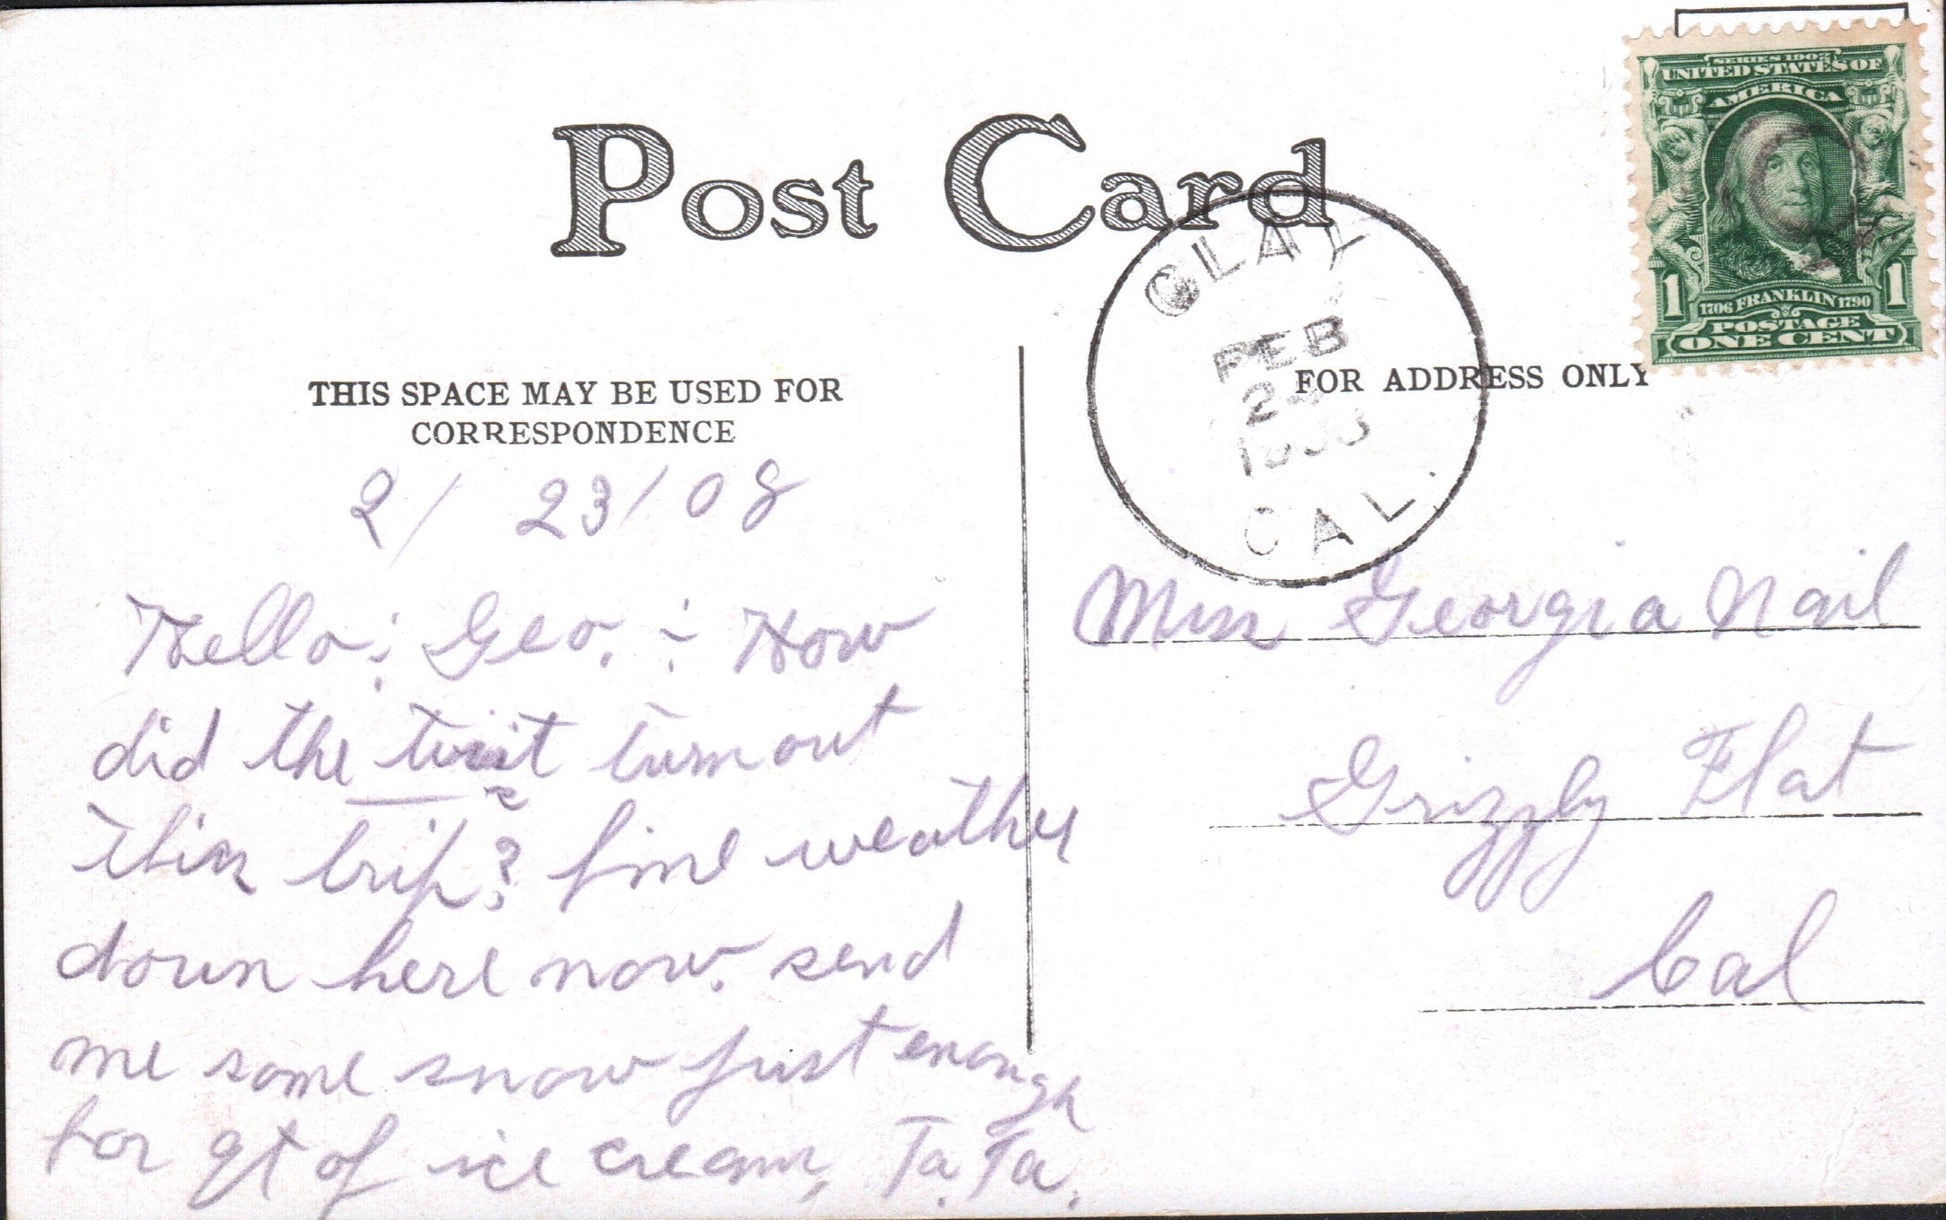 Post Card
CLAY
FEB
24
1908
CAL.
SERIES 1902
UNITED STATES OF
AMERICA
1 1
1706 FRANKLIN 1790
POSTAGE
ONE CENT
THIS SPACE MAY BE USED FOR
CORRESPONDENCE
FOR ADDRESS ONLY
2/ 23/08
Hello; Geo. ÷ How
did the turn out
this trip? fine weather
down here now. send
me some snow just enough
for qt of ice cream, Ta. Ta.
Miss Georgia Nail
Grizzly Flat
Cal